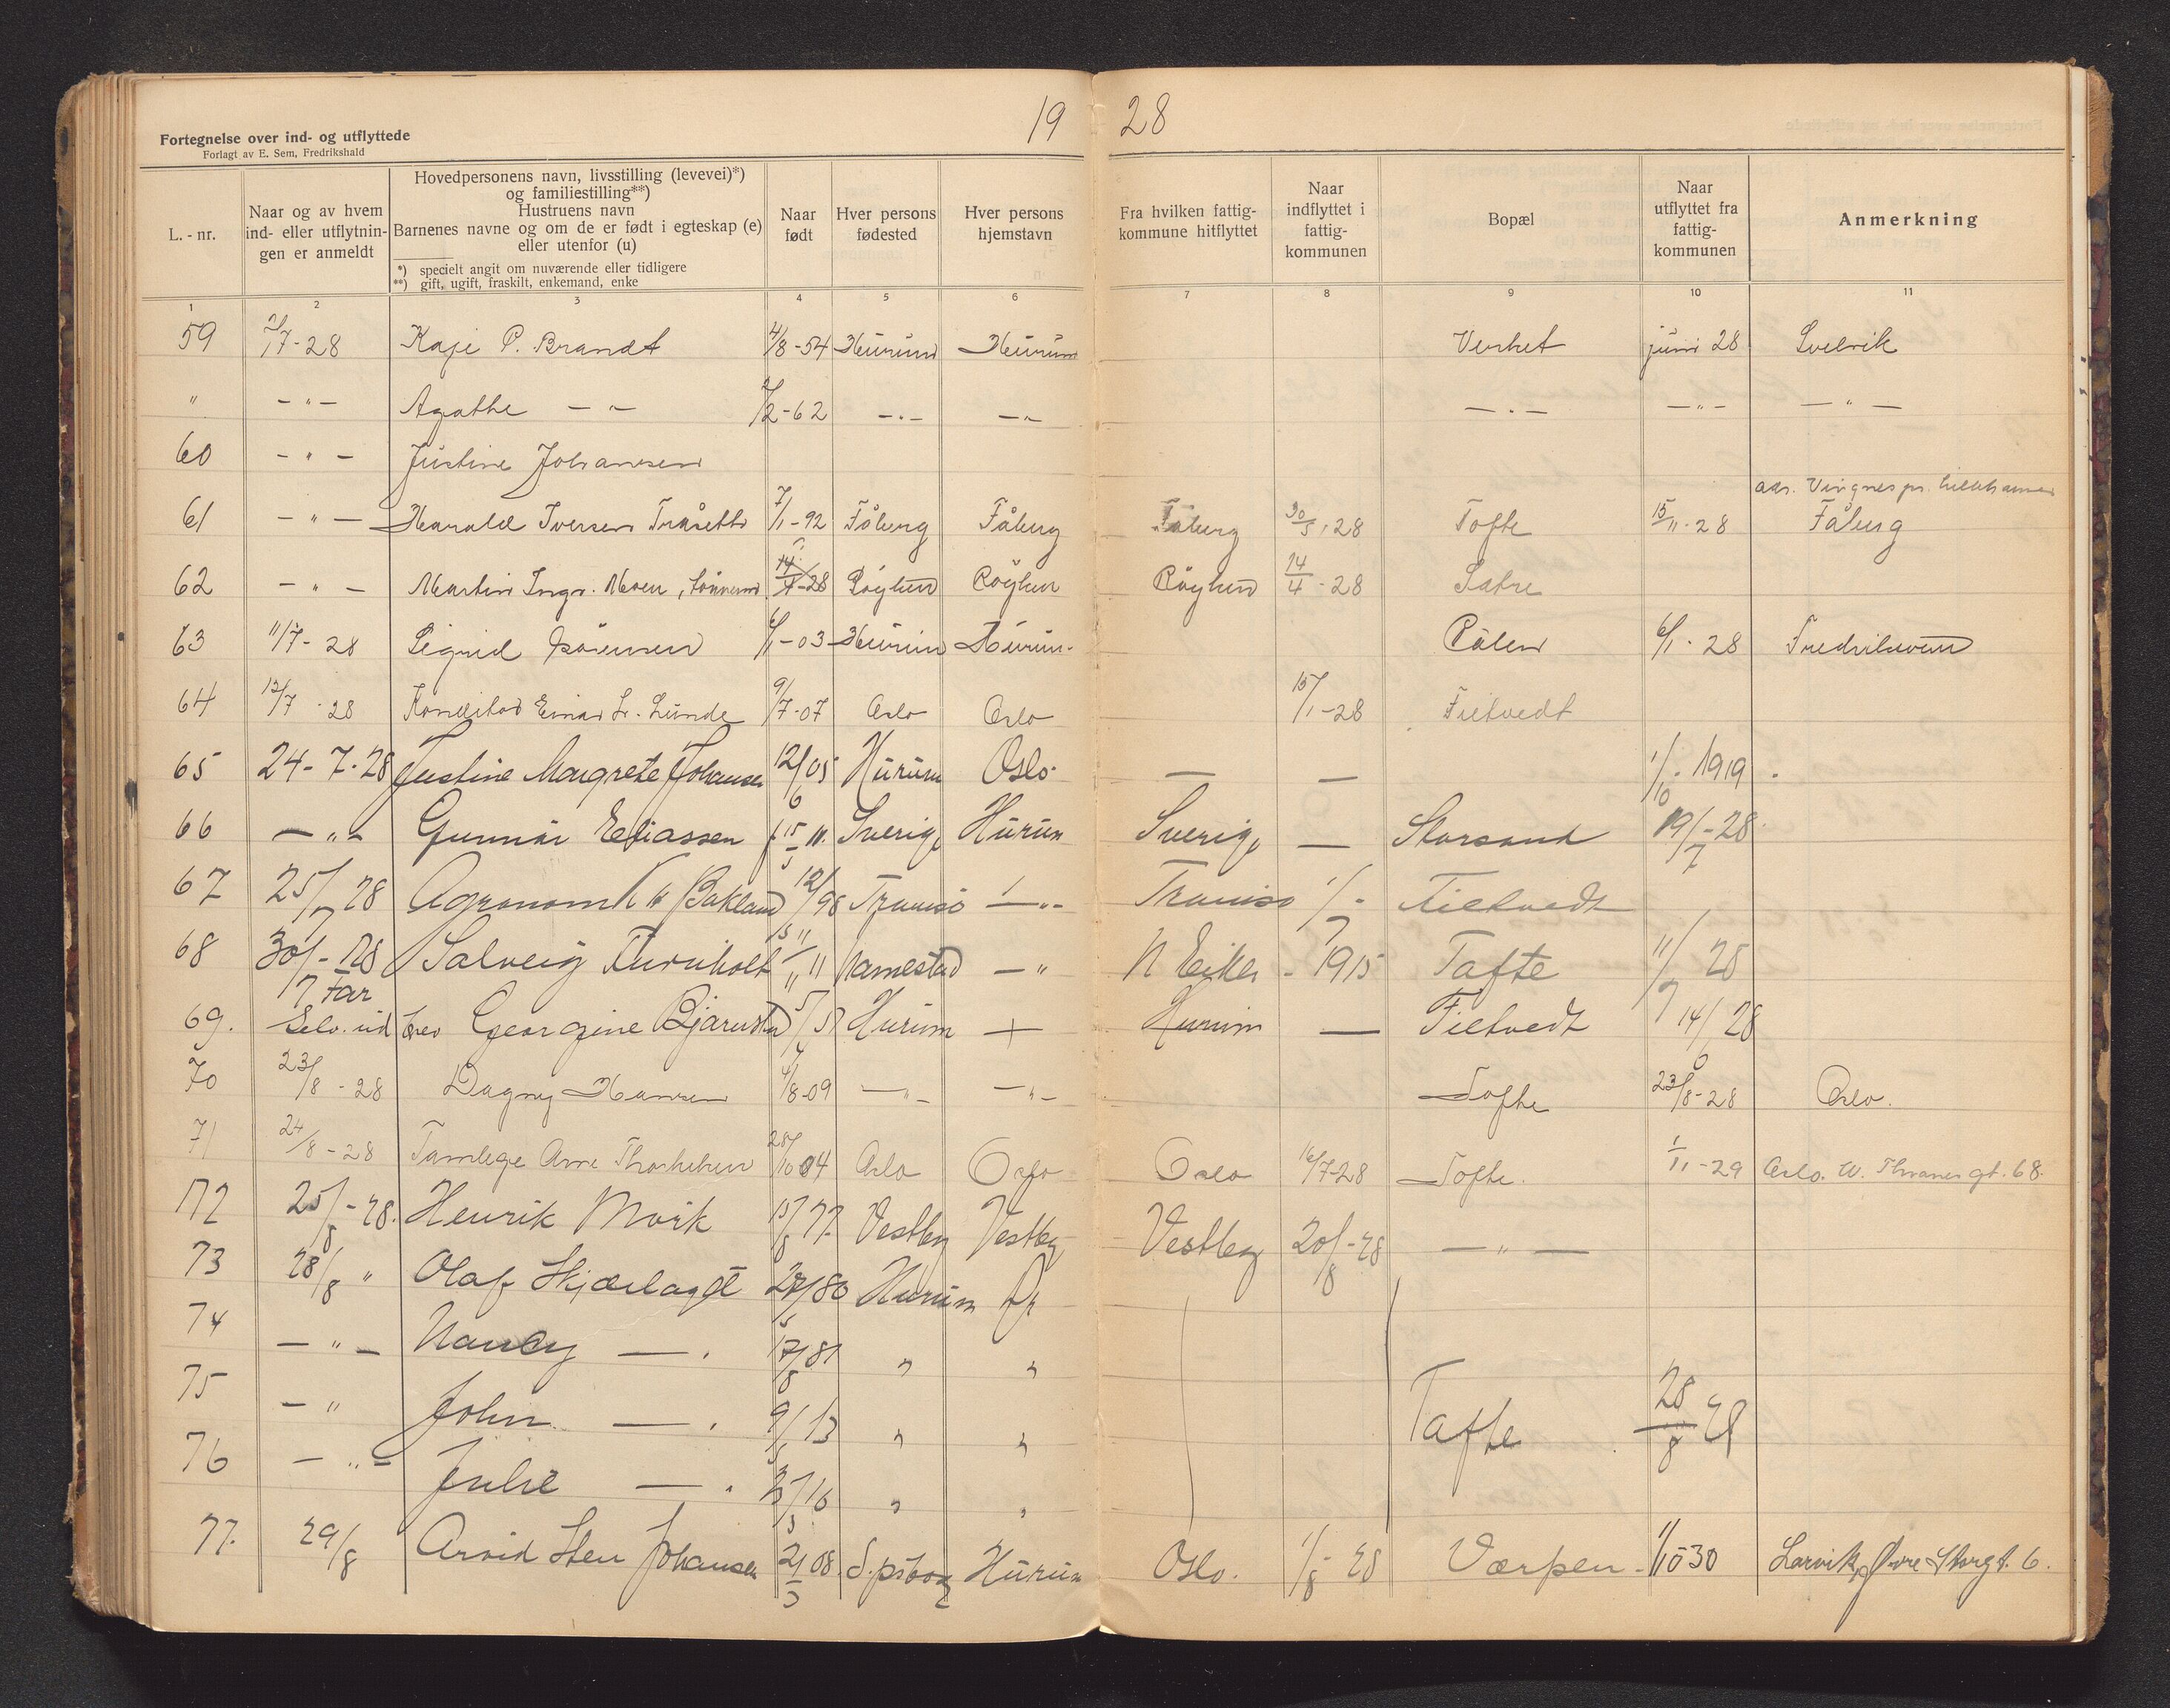 19 28
Fortegnelse over ind- og utflyttede
Forlagt av E. Sem, Fredrikshald
L.-nr.
Naar og av hvem ind- eller utflytningen er anmeldt
Hovedpersonens navn, livsstilling (levevei)*) og familiestilling**)
Hustruens navn
Barnenes navne og om de er født i egteskap (e) eller utenfor (u)
*) specielt angit om nuværende eller tidligere
**) gift, ugift, fraskilt, enkemand, enke
Naar født
Hver persons fødested
Hver persons hjemstavn
Fra hvilken fattigkommune hitflyttet
Naar indflyttet i fattigkommunen
Bopæl
Naar utflyttet fra fattigkommunen
Anmerkning
1 2 3 4 5 6 7 8 9 10 11
59 Kaje P. Brandt 4/8-54 Hurum Hurum Verket juni 28 Svelvik
" -"- Agathe -"- 2/2-62 -"- -"- -"- -"- -"-
60 -"- Justine Johansen
adr. Vingnes pr. Lillehammer
61 -"- Harald Iversen 7/1-92 Fåberg Fåberg Fåberg 30/5-28 Tofte 15/11-28 Fåberg
62 -"- Martin Ingv. Moen, 14/4-28 Røyken Røyken Røyken 14/4-28 Sætre
63 11/7-28 Sigrid Sørensen 6/1-03 Hurum Hurum Rålen 6/1-28
64 12/7-28 Konditor Einar Lunde 9/7-07 Oslo Oslo 15/1-28 Filtvedt
65 24-7-28 Justine Margrete Johansen 12/6 05 Hurum Oslo — — 1/10-1919
66 -"- Gunnar Eliassen f 15/5 11. Sverige Hurum Sverige — Storsand 19/7-28
67 25/7 28 Agronom Bakland 12/98 Tromsø -"- Tromsø 1/7- Filtvedt
68 30/7-28 Solveig Furuholt 11 -"- N Eiker - 1915 Tofte 11/7 28
69. Georgine Hurum Hurum — Filtvedt 14/6 28
70 23/8-28 Dagny Hansen 4/8-09 -"- -"- Tofte 23/8-28 Oslo.
71 24/8-28 Tannlege Arne 28/10 04 Oslo Oslo Oslo 16/7-28 Tofte. 1/11-29 Oslo. W. Thranes gt. 68.
72 25/8-28. Henrik Mork 15/8 77. Vestby Vestby Vestby 20/8-28 -"-
73 28/8 " Olaf 80 Hurum
74 -"- Nancy — . 17/8 81 " "
75 -"- John — . 9/5 13 " " Tofte 28/8 28
76 -"- Julie — . 16 " "
77. 29/8 Arvid Sten Johansen 21/5 08. Hurum Oslo. 1/8-28 Værpen 1/10 30 Larvik, Øvre Storgt. 6.